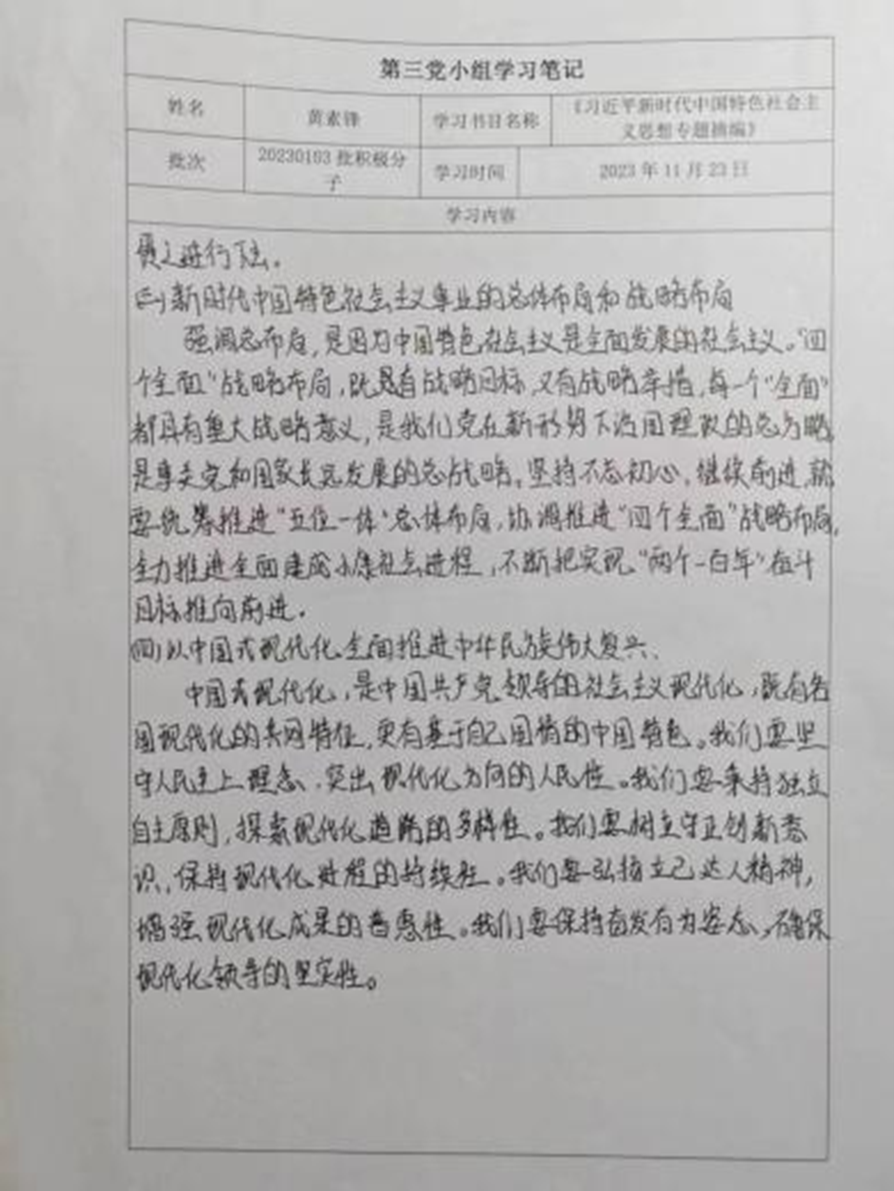 第三党小组学习笔记
姓名 黄素锋 学习书目名称 《习近平新时代中国特色社会主
义思想专题摘编》
批次 20230103批积极分
子 学习时间 2023年11月23日
学习内容
进行下去。
(三)新时代中国特色社会主义事业的总体布局和战略布局
强调总布局,是因为中国特色社会主义是全面发展的社会主义。"四
个全面"战略布局,既有战略目标,又有战略举措,每一个"全面"
都具有重大战略意义,是我们党在新形势下治国理政的总方略,
是事关党和国家长远发展的总战略。坚持不忘初心,继续前进,就
要统筹推进"五位一体"总体布局,协调推进"四个全面"战略布局,
全力推进全面建成小康社会进程,不断把实现"两个一百年"奋斗
目标推向前进.
(四)以中国式现代化全面推进中华民族伟大复兴、
中国式现代化,是中国共产党领导的社会主义现代化,既有各
国现代化的共同特征,更有基于自己国情的中国特色。我们要坚
守人民至上理念、突出现代化方向的人民性。我们要秉持独立
自主原则,探索现代化道路的多样性。我们要树立守正创新意
识,保持现代化进程的持续性。我们要弘扬立己达人精神,
增强现代化成果的普惠性。我们要保持奋发有为姿态,确保
现代化领导的坚实性。